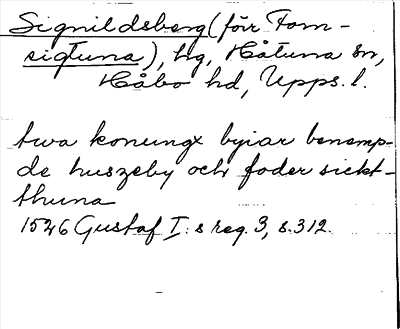 Signildsberg (förr Forn-
sigtuna), hg, Håtuna sn,
Håbo hd, Upps. l.
twa konungx byiar benemp-
de huszeby och foder sickt-
thuna
1526 Gustaf I:s reg. 3, s. 312.